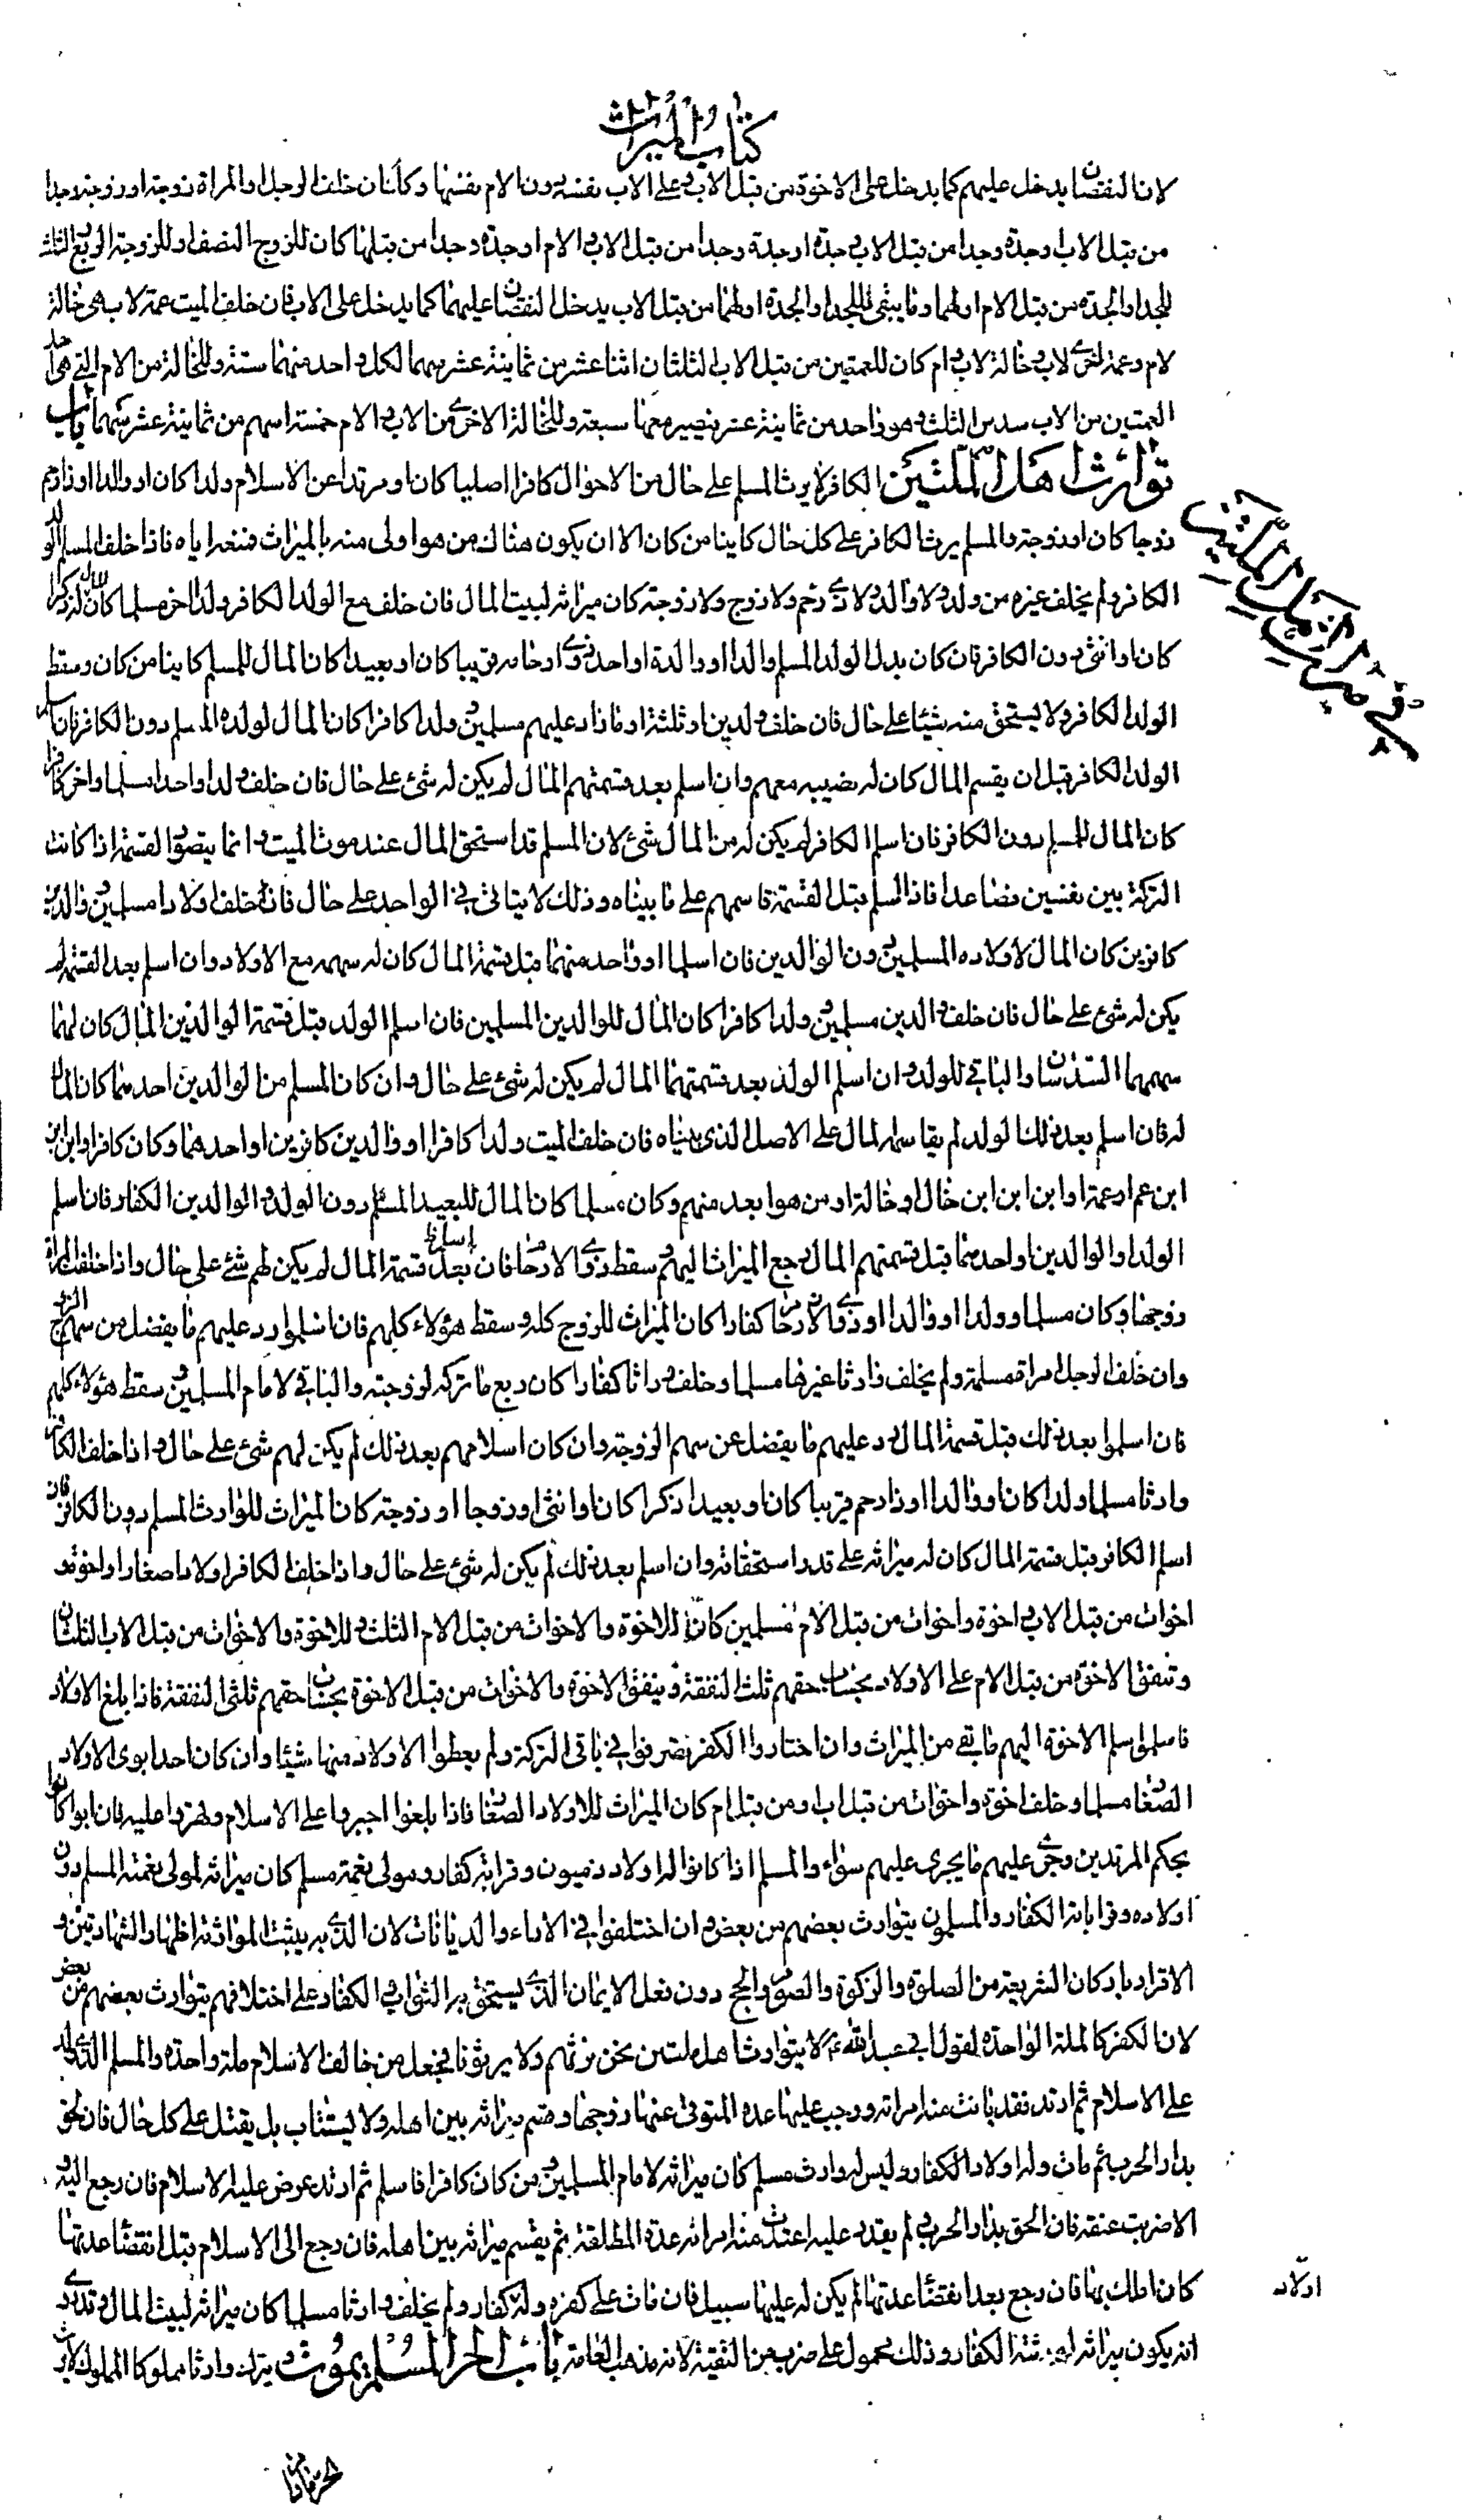 كتاب الميراث
لان النقصان يدخل عليهم كما يدخل على الاخوة من قبل الاب و على الاب نفسه دون الام نفسها و كان ان خلف الرجل او المراة زوجة او زوجا و جدا
من قبل الاب و جدة و جدا من قبل الاب و جدة او جدة و جدا من قبل الاب و الام او جدة و جدا من قبلها كان للزوج النصف او للزوجة الربع و الثلث
للجد او الجدة من قبل الام او لهما و ما يبقى فللجد او الجدة او لهما من قبل الاب يدخل النقصان عليهما كما يدخل على الاب فان خلف الميت عمة لاب هى خالة
لام و عمة اخرى لاب و خالة لاب و ام كان للعمتين من قبل الاب الثلثان اثنا عشر من ثمانية عشر سهما لكل واحد منهما ستة و للخالة من الام التى هى احد
العمتين من الاب سدس الثلث و هو واحد من ثمانية عشر فيصير معها سبعة و للخالة الاخرى من الاب و الام خمسة اسهم من ثمانية عشر سهما باب
توارث اهل الملتين الكافر لا يرث المسلم على حال من الاحوال كافرا اصليا كان او مرتدا عن الاسلام ولدا كان او والدا او ذا رحم
زوجا كان او زوجة و المسلم يرث الكافر على كل حال كاينا من كان الا ان يكون هناك من هو اولى منه بالميراث فمنعه اياه فاذا خلف المسلم الولد
الكافر و لم يخلف غيره من ولد و لا والد و لا ذى رحم و لا زوج و لا زوجة كان ميراثه لبيت المال فان خلف مع الولد الكافر ولدا اخر مسلما كان المال له ذكرا
كان او انثى دون الكافر فان كان بدل الولد المسلم والدا او والدة او احد ذوى ارحامه قريبا كان او بعيدا كان المال للمسلم كاينا من كان و سقط
الولد الكافر و لا يستحق منه شيئا على حال فان خلف ولدين او ثلثة او ما زاد عليهم مسلمين و ولدا كافرا كان المال لولده المسلم دون الكافر فان اسلم
الولد الكافر قبل ان يقسم المال كان له نصيبه معهم و ان اسلم بعد قسمتهم المال لم يكن له شئ على حال فان خلف ولدا واحدا مسلما و اخر كافرا
كان المال للمسلم دون الكافر فان اسلم الكافر لم يكن له من المال شئ لان المسلم قد استحق المال عند موت الميت و انما يتصور القسمة اذا كانت
التركة بين نفسين فصاعدا فاذا اسلم قبل القسمة قاسمهم على ما بيناه و ذلك لا يتاتى فى الواحد على حال فان خلف اولادا مسلمين و والدين
كافرين كان المال لاولاده المسلمين دون الوالدين فان اسلما او واحد منهما قبل قسمة المال كان له سهمه مع الاولاد و ان اسلم بعد القسمة لم
يكن له شئ على حال فان خلف والدين مسلمين و ولدا كافرا كان المال للوالدين المسلمين فان اسلم الولد قبل قسمة الوالدين المال كان لهما
سهمهما السدسان و الباقى للولد و ان اسلم الولد بعد قسمتهما المال لم يكن له شئ على حال و ان كان المسلم من الوالدين احدهما كان المال
له فان اسلم بعد ذلك الولد لم يقاسمه المال على الاصل الذى بيناه فان خلف الميت ولدا كافرا او والدين كافرين او احدهما و كان كافرا و ابن ابن
ابن عم او عمة او ابن ابن ابن خال او خالة او من هو ابعد منهم و كان مسلما كان المال للبعيد المسلم دون الولد و الوالدين الكفار فان اسلم
الولد او الوالدين او احد منهما قبل قسمتهم المال رجع الميراث اليهم و سقط ذوى الارحام فان اسلموا بعد قسمة المال لم يكن لهم شئ على حال و اذا خلفت المراة
زوجها و كان مسلما و ولدا او والدا او ذوى الارحام كفارا كان الميراث للزوج كله و سقط هؤلاء كلهم فان اسلموا رد عليهم ما يفضل من سهم الزوج
و ان خلف الرجل امراة مسلمة و لم يخلف وارثا غيرها مسلما و خلف وراثا كفارا كان ربع ما تركه لزوجته و الباقى لامام المسلمين و سقط هؤلاء كلهم
فان اسلموا بعد ذلك قبل قسمة المال رد عليهم ما يفضل عن سهم الزوجة و ان كان اسلامهم بعد ذلك لم يكن لهم شئ على حال و اذا خلف الكافر
وارثا مسلما ولدا كان او والدا او ذا رحم قريبا كان او بعيدا ذكرا كان او انثى او زوجا او زوجة كان الميراث للوارث المسلم دون الكافر فان
اسلم الكافر قبل قسمة المال كان له ميراثه على قدر استحقاقه و ان اسلم بعد ذلك لم يكن له شئ على حال و اذا خلف الكافر اولادا صغارا و اخوة و
اخوات من قبل الاب و اخوة و اخوات من قبل الام مسلمين كان للاخوة و الاخوات من قبل الام الثلث و للاخوة و الاخوات من قبل الاب الثلثان
و تنفق الاخوة من قبل الام على الاولاد بحساب حقهم ثلث النفقة و ينفق الاخوة و الاخوات من قبل الاخوة بحساب حقهم ثلثى النفقة فاذا بلغ الاولاد
فاسلموا سلم الاخوة اليهم ما بقى من الميراث و ان اختاروا الكفر تصرفوا فى باقى التركة و لم يعطوا الاولاد منها شيئا و ان كان احد ابوى الاولاد
الصغار مسلما و خلف اخوة و اخوات من قبل اب و من قبل ام كان الميراث للاولاد الصغار فاذا بلغوا اجبروا على الاسلام و قهروا عليه فان ابوا كانوا
بحكم المرتدين و جرى عليهم ما يجرى عليهم سواء و المسلم اذا كانوا له اولاد ذميون و قرابة كفار و مولى نعمة مسلم كان ميراثه لمولى نعمته المسلم دون
اولاده و قراباته الكفار و المسلمون يتوارث بعضهم من بعض و ان اختلفوا فى الاراء و الديانات لان الذى به يثبت الموارثة اظهار الشهادتين و
الاقرار باركان الشريعة من الصلوة و الزكوة و الصوم و الحج دون فعل الايمان الذى يستحق به الثواب و الكفار على اختلافهم يتوارث بعضهم من بعض
لان الكفر كالملة الواحدة لقول ابى عبد الله ع لا يتوارث اهل ملتين نحن نرثهم و لا يرثونا فجعل من خالف الاسلام ملة واحدة و المسلم الذى ولد
على الاسلام ثم ارتد فقد بانت عنه امراته و وجب عليها عدة المتوفى عنها زوجها و قسم ميراثه بين اهله و لا يستتاب بل يقتل على كل حال فان لحق
بدار الحرب ثم مات و له اولاد الكفار و ليس له وارث مسلم كان ميراثه لامام المسلمين و من كان كافرا فاسلم ثم ارتد عرض عليه الاسلام فان رجع اليه و
الا ضربت عنقه فان لحق بدار الحرب و لم يقدر عليه اعتدت منه امراته عدة المطلقة ثم يقسم ميراثه بين اهله فان رجع الى الاسلام قبل انقضاء عدتها
كان املك بها فان رجع بعد انقضاء عدتها لم يكن له عليها سبيل فان مات على كفره و له كفار و لم يخلف وارثا مسلما كان ميراثه لبيت المال و قد روى
اولاد
انه يكون ميراثه لورثته الكفار و ذلك محمول على ضرب من التقية لانه مذهب العامة باب الحر المسلم يموت و يترك وارثا مملوكا المملوك لا يرث